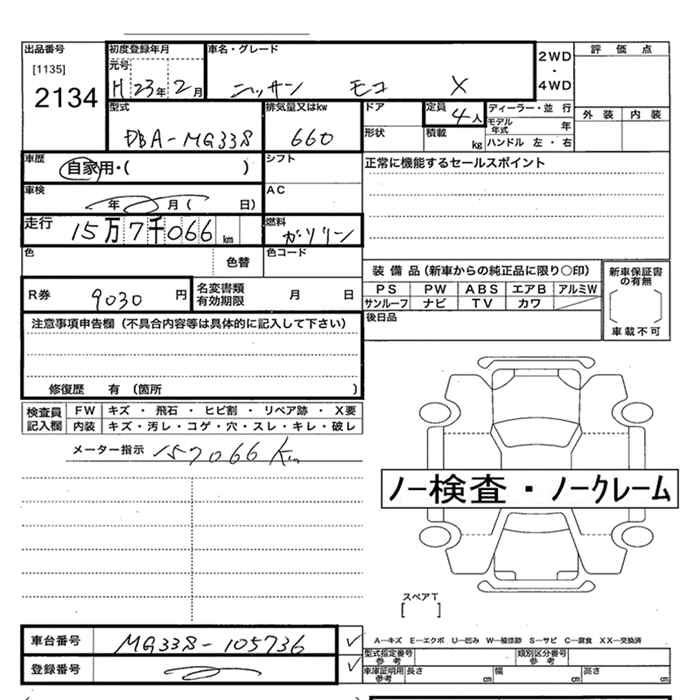 出品番号 初度登録年月 車名・グレード 2WD ・ 4WD 評価点
[1135] 元号
2134 H 23年 2月 ニッサン モコ X
外装 内装
型式 排気量又はkw ドア 定員 4人 ディーラー・並行
DBA-MG33S 660 形状 積載 kg モデル年式 年
ハンドル 左・右
車歴 自家用・( ) シフト 正常に機能するセールスポイント
車検 年 月( 日) AC
走行 15万7千066km 燃料 ガソリン
色 色替 色コード
装備品(新車からの純正品に限り○印) 新車保証書の有無
R券 9030円 名変書類有効期限 月 日 PS PW ABS エアB アルミW
サンルーフ ナビ TV カワ
[ ]
車載不可
注意事項申告欄(不具合内容等は具体的に記入して下さい) 後日品
修復歴 有 (箇所 )
検査員記入欄 FW キズ ・ 飛石 ・ ヒビ割 ・ リペア跡 ・ X要
内装 キズ・汚レ・コゲ・穴・スレ・キレ・破レ
メーター指示 157066Km
ノー検査・ノークレーム
スペアT
[ ]
車台番号 MG33S-105736 ✓
A—キズ E—エクボ U—凹み W—補修跡 S—サビ C—腐食 XX—交換済
登録番号 ✓
型式指定番号 参考 類別区分番号 参考
車庫証明用 参考 長さ cm 幅 cm 高さ cm